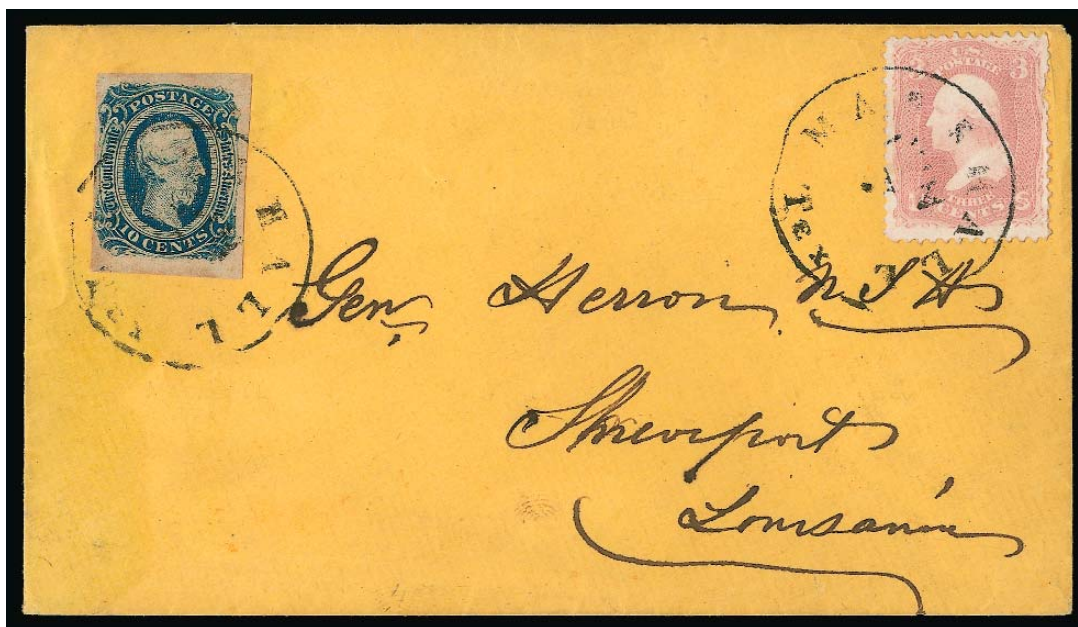 POSTAGE
The Confederate States of America
10 CENTS
LL
U.S.
POSTAGE
3 3
THREE
CENTS
MARSHALL Tex
Gen. Herron, U.S.A
Shreveport
Louisania